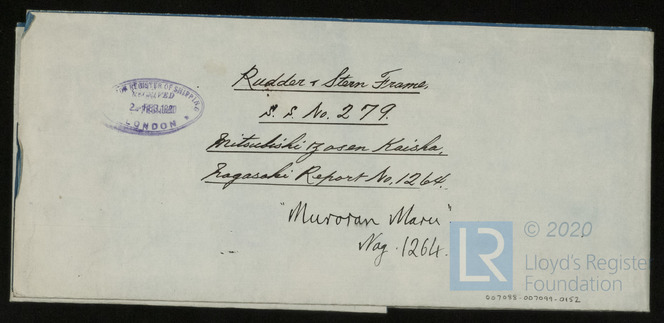 Rudder & Stern Frame,
S. S. No. 279.
Mitsubishi Zosen Kaisha,
Nagasaki Report No. 1264.
"Muroran Maru"
Nag. 1264.
REGISTER OF SHIPPING
RECEIVED
LONDON
LR
© 2020
Lloyd's Register
Foundation
007098-007099-0152